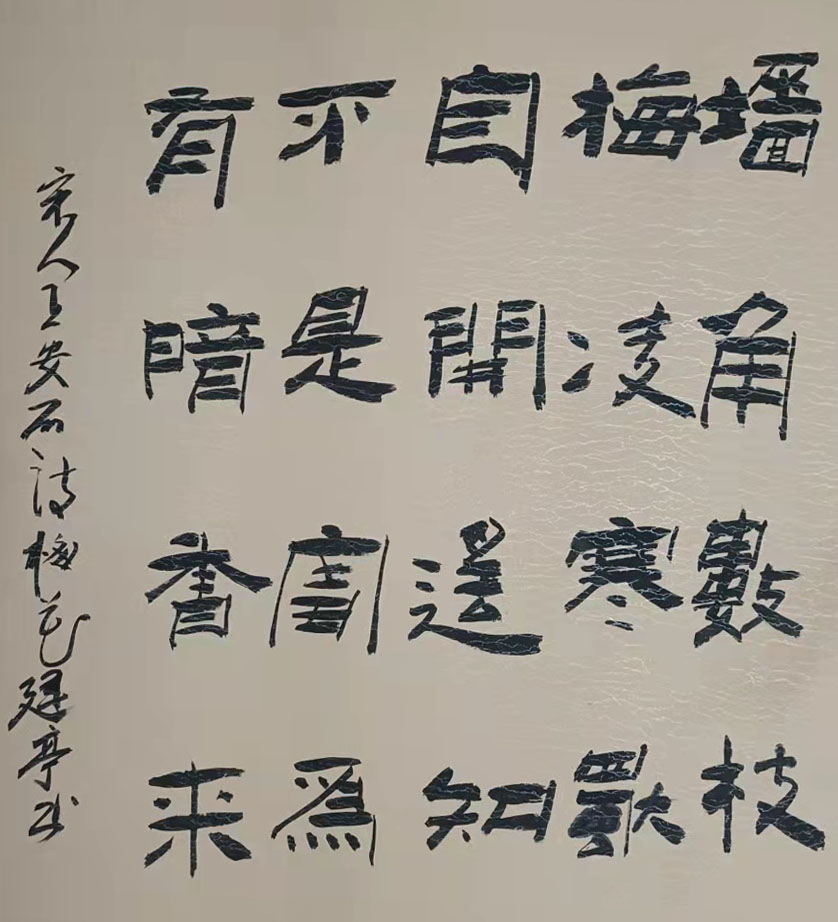 墙角數枝
梅凌寒獨
自開遥知
不是雪為
有暗香来
宋人王安石诗梅花建亭书